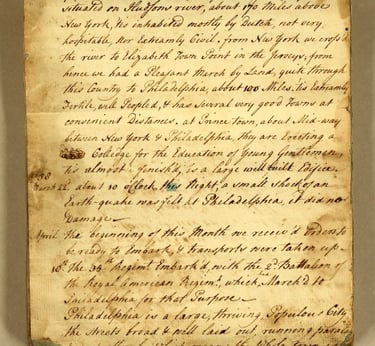 situated on Hudsons river, about 170 Miles above
New York, tis inhabited mostly by Dutch, not very
hospitable, nor Extreamly Civil. from New York we cross'd
the river to Elizabeth Town Point in the Jerseys, from
hence we had a Pleasant March by Land, quite through
this Country to Philadelphia, about 100 Miles, tis Extreamly
Fertile, well Peopled, & has several very good Towns at
convenient Distances. at Prince Town, about Mid-way
between New York & Philadelphia, they are Erecting a
College for the Education of Young Gentlemen,
tis almost Finish'd, is a large well built Edifice.
March 22. about 10 oClock this Night, a small shock of an
Earth-quake was felt at Philadelphia, it did no
Damage
April The beginning of this Month we receiv'd Orders to
be ready to Embark, & Transports were taken up
10th The 35th Regimt Embark'd, with the 2d Battalion of
the Royal American Regimt, which March'd to
Philadelphia for that Purpose
Philadelphia is a large, thriving, Populous City,
the streets broad & well laid out, running